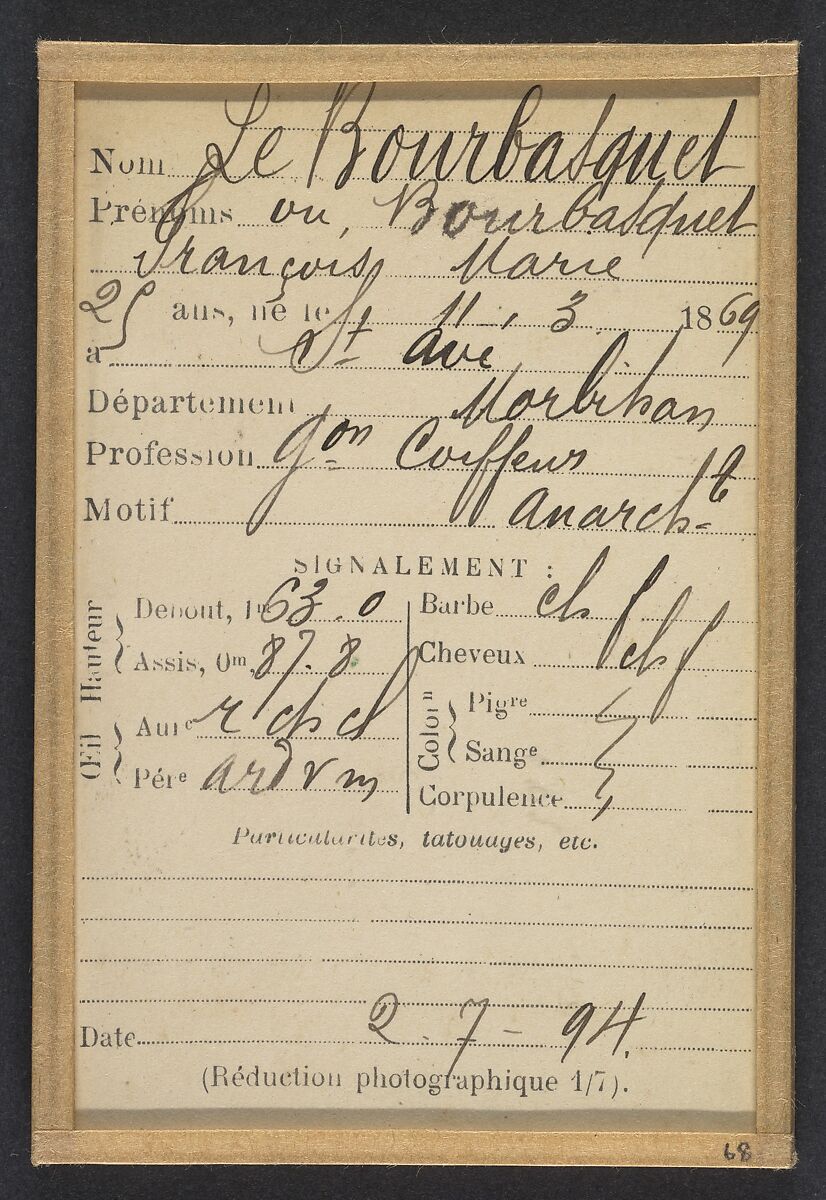 Nom Le Bourbasquet
Prénoms ou, Bourbasquet
François Marie
25 ans, né le 11. 3 1869
à St Avé
Département Morbihan
Profession gon Coiffeur
Motif anarch-te
SIGNALEMENT :
Hauteur
Debout, 1m 63.0
Assis, 0m. 87.8
Œil
Aure r ch cl
Pére ard v m
Barbe ch f
Cheveux ch f
Colorn
Pigre
Sange
Corpulence
Particularités, tatouages, etc.
Date 2-7-94.
(Réduction photographique 1/7).
68